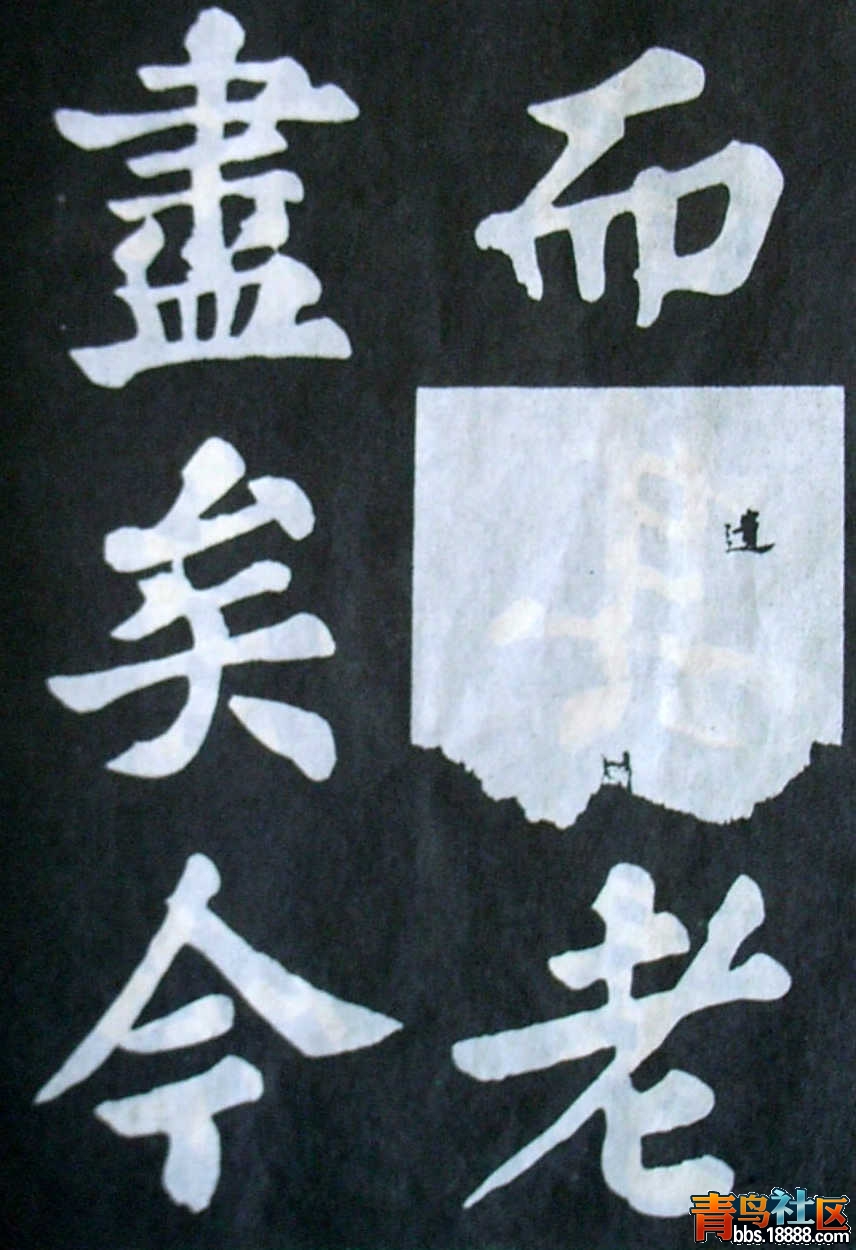 而遺老
盡矣今
青鸟社区
bbs.18888.com